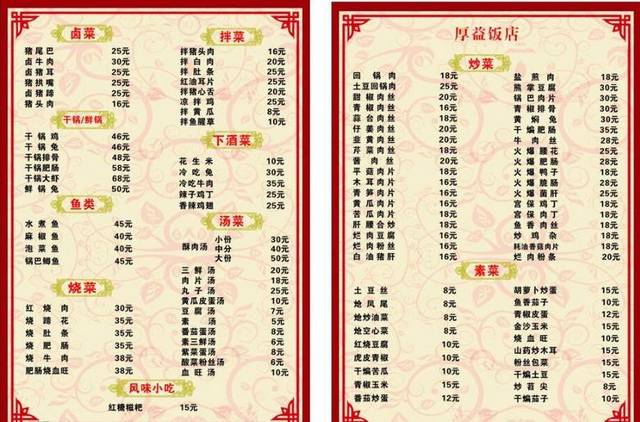 卤菜
猪尾巴 25元
卤牛肉 30元
卤猪耳 25元
猪拱嘴 25元
卤猪蹄 25元
猪头肉 16元
干锅/鲜锅
干锅鸡 46元
干锅兔 46元
干锅排骨 48元
干锅肥肠 58元
干锅大虾 68元
鲜锅兔 50元
鱼类
水煮鱼 45元
麻椒鱼 40元
泡菜鱼 40元
锅巴鲫鱼 45元
烧菜
红烧肉 30元
烧蹄花 35元
烧肚条 35元
烧肥肠 35元
烧牛肉 38元
肥肠烧血旺 38元
拌菜
拌猪头肉 16元
拌白肉 20元
拌肚条 25元
红油耳片 25元
拌猪心舌 20元
凉拌鸡 25元
拌黄瓜 8元
拌鱼腥草 10元
下酒菜
花生米 10元
冷吃兔 30元
冷吃牛肉 35元
辣子鸡丁 25元
香辣鸡翅 25元
汤菜
酥肉汤 小份 30元
中分 40元
大份 50元
三鲜汤 20元
肉片汤 18元
丸子汤 25元
黄瓜皮蛋汤 10元
豆腐汤 7元
素汤 5元
番茄蛋汤 8元
素三鲜汤 6元
紫菜蛋汤 8元
酸菜粉丝汤 6元
血旺汤 10元
风味小吃
红糖糍粑 15元
厚益饭店
炒菜
回锅肉 18元
土豆回锅肉 25元
甜椒肉丝 16元
青椒肉丝 16元
蒜台肉丝 18元
仔姜肉丝 18元
韭黄肉丝 18元
芹菜肉丝 18元
酱肉丝 20元
平菇肉片 16元
木耳肉片 16元
青笋肉片 16元
黄瓜肉片 16元
苦瓜肉片 16元
肝腰合炒 18元
烂肉豆腐 16元
烂肉粉丝 16元
白油猪肝 16元
盐煎肉 18元
熊掌豆腐 30元
锅巴肉片 30元
青椒排骨 30元
黄焖兔 30元
干煸肥肠 35元
牛肉丝 28元
火爆腰花 25元
火爆肥肠 28元
火爆鸭子 18元
火爆脆肠 28元
火爆菌肝 25元
宫保鸡丁 18元
宫保肉丁 18元
鱼香肉丝 18元
炒鸡杂 18元
耗油香菇肉片 18元
烂肉粉条 20元
素菜
土豆丝 8元
炝凤尾 8元
炝炒油菜 8元
炝空心菜 8元
红烧豆腐 10元
虎皮青椒 10元
干煸苦瓜 10元
青椒玉米 15元
番茄炒蛋 12元
胡萝卜炒蛋 15元
鱼香茄子 10元
青椒皮蛋 12元
金沙玉米 15元
烧血旺 10元
山药炒木耳 15元
粉丝包菜 15元
干煸土豆 15元
炒苕尖 8元
干煸茄子 10元